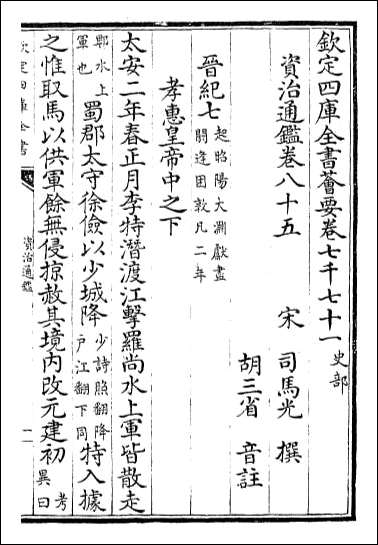 欽定四庫全書薈要卷七千七十一 史部
資治通鑑卷八十五
宋 司馬光 撰
胡三省 音註
晉紀七 起昭陽大淵獻盡
閼逢困敦凡二年
孝惠皇帝中之下
太安二年春正月李特潛渡江擊羅尚水上軍皆散走
郫水上
軍也 蜀郡太守徐儉以少城降 少詩照翻降
戶江翻下同 特入據
之惟取馬以供軍餘無侵掠赦其境內改元建初 考
異曰
欽定四庫全書
資治通鑑
一